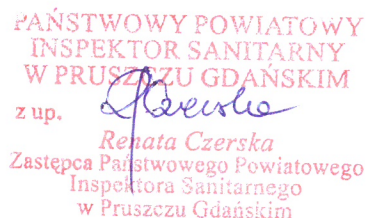 PAŃSTWOWY POWIATOWY
INSPEKTOR SANITARNY
W PRUSZCZU GDAŃSKIM
z up. Czerska
Renata Czerska
Zastępca Państwowego Powiatowego
Inspektora Sanitarnego
w Pruszczu Gdańskim